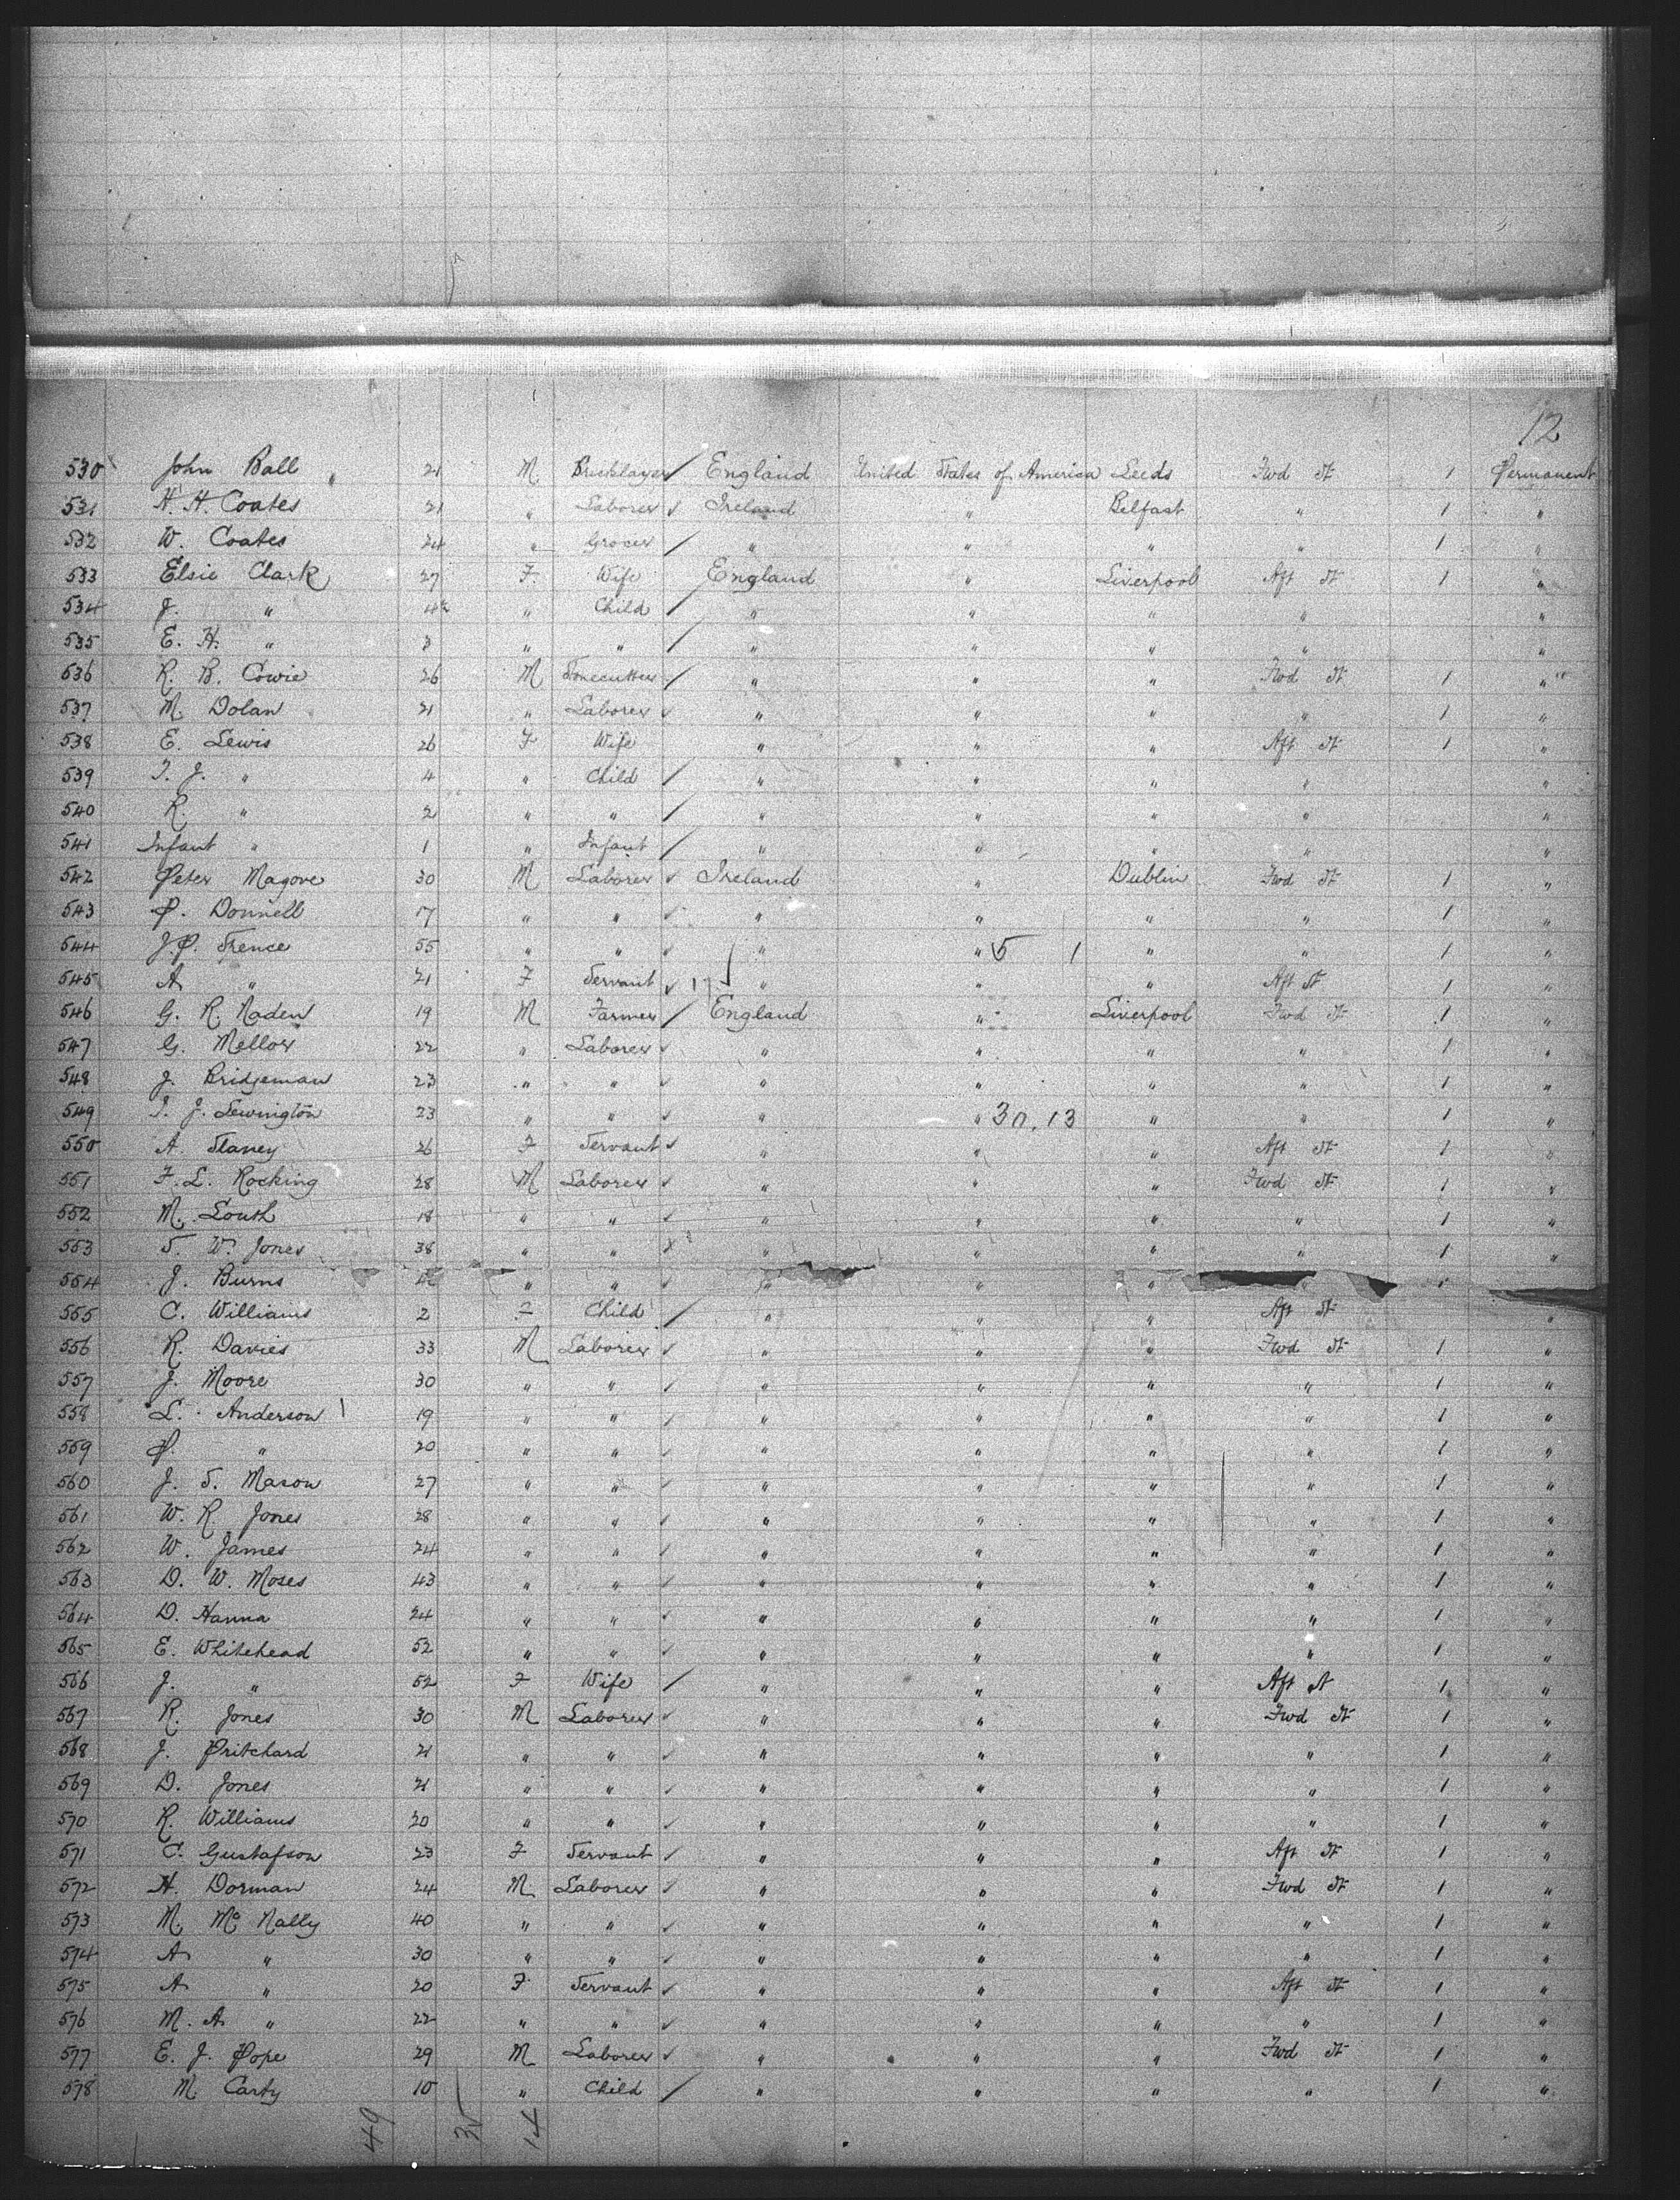 12
530 John Ball 21 M Bricklayer / England United States of America Leeds Fwd St 1 Permanent
531 H. H. Coates 21 " Laborer ✓ Ireland " Belfast " 1 "
532 W. Coates 24 " Grocer / " " " " 1 "
533 Elsie Clark 27 F. Wife England " Liverpool Aft St 1 "
534 J. " " Child / " " " " "
535 E. H. " 3 " " / " " " " "
536 R. B. Cowie 26 M Stonecutter / " " " Fwd St 1 "
537 M. Dolan 21 " Laborer ✓ " " " " 1 "
538 E. Lewis 26 F Wife " " " Aft St 1 "
539 T. J. " 4 " Child / " " " " "
540 R. " 2 " " / " " " " "
541 Infant " 1 " Infant / " " " " "
542 Peter Magove 30 M Laborer ✓ Ireland " Dublin Fwd St 1 "
543 P. Donnell 17 " " ✓ " " " " 1 "
544 J. P. Trence 55 " " ✓ " " 5 1 " " 1 "
545 A " 21 F Servant ✓ 17 " " " Aft St 1 "
546 G. R. Naden 19 M Farmer / England " Liverpool Fwd St 1 "
547 G. Mellor 22 " Laborer ✓ " " " " 1 "
548 J. Bridgeman 23 " " ✓ " " " " 1 "
549 T. J. Lewington 23 " " ✓ " " 30.13 " " 1 "
550 A. Slaney 26 F Servant ✓ " " " Aft St 1 "
551 F. L. Hocking 28 M Laborer ✓ " " " Fwd St 1 "
552 M. South 18 " " ✓ " " " " 1 "
553 T. W. Jones 38 " " ✓ " " " " 1 "
554 J. Burns " " ✓ " " "
555 C. Williams 2 F Child / " " " Aft St "
556 R. Davies 33 M Laborer ✓ " " " Fwd St 1 "
557 J. Moore 30 " " ✓ " " " " 1 "
558 L. Anderson 19 " " ✓ " " " " 1 "
559 P. " 20 " " ✓ " " " " 1 "
560 J. T. Mason 27 " " ✓ " " " " 1 "
561 W. R. Jones 28 " " ✓ " " " " 1 "
562 W. James 24 " " ✓ " " " " 1 "
563 D. W. Moses 43 " " ✓ " " " " 1 "
564 D. Hanna 24 " " ✓ " " " " 1 "
565 E. Whitehead 52 " " ✓ " " " " 1 "
566 J. " 52 F Wife / " " " Aft St 1 "
567 R. Jones 30 M Laborer ✓ " " " Fwd St 1 "
568 J. Pritchard 21 " " ✓ " " " " 1 "
569 D. Jones 21 " " ✓ " " " " 1 "
570 R. Williams 20 " " ✓ " " " " 1 "
571 C. Gustafson 23 F Servant ✓ " " " Aft St 1 "
572 H. Dorman 24 M Laborer ✓ " " " Fwd St 1 "
573 M McNally 40 " " ✓ " " " " 1 "
574 A " 30 " " ✓ " " " " 1 "
575 A " 20 F Servant ✓ " " " Aft St 1 "
576 M. A " 22 " " ✓ " " " " 1 "
577 E. J. Pope 29 M Laborer ✓ " " " Fwd St 1 "
578 M. Carty 10 " Child / " " " " 1 "
49 35 14